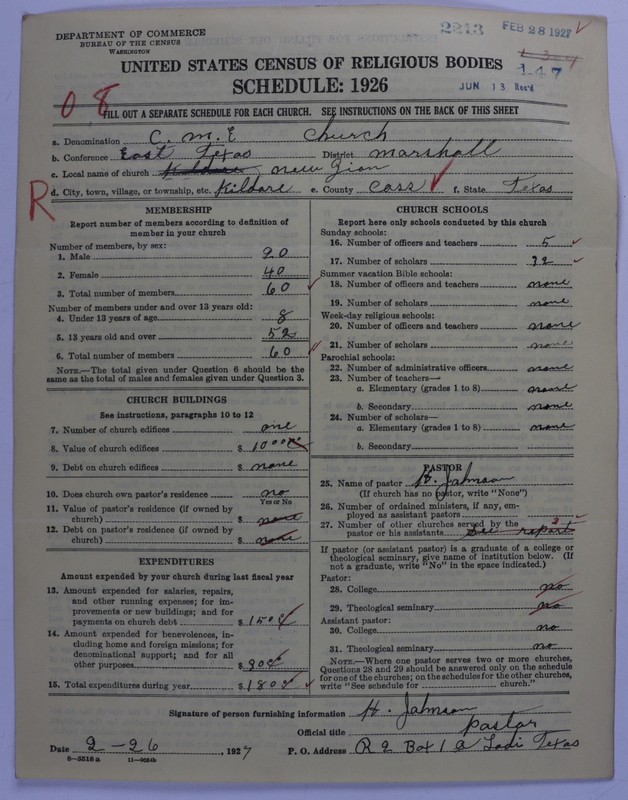 DEPARTMENT OF COMMERCE
BUREAU OF THE CENSUS
WASHINGTON
2213
FEB 28 1927
UNITED STATES CENSUS OF RELIGIOUS BODIES
147
SCHEDULE: 1926
JUN 13 Rec'd
08
FILL OUT A SEPARATE SCHEDULE FOR EACH CHURCH. SEE INSTRUCTIONS ON THE BACK OF THIS SHEET
a. Denomination C. M. E Church
b. Conference East Texas District Marshall
c. Local name of church Kildare New Zion
R
d. City, town, village, or township, etc. Kildare e. County Cass f. State Texas
MEMBERSHIP
Report number of members according to definition of
member in your church
Number of members, by sex:
1. Male 20
2. Female 40
3. Total number of members 60
Number of members under and over 13 years old:
4. Under 13 years of age 8
5. 13 years old and over 52
6. Total number of members 60
NOTE.—The total given under Question 6 should be the
same as the total of males and females given under Question 3.
CHURCH BUILDINGS
See instructions, paragraphs 10 to 12
7. Number of church edifices one
8. Value of church edifices $ 1000
9. Debt on church edifices $ none
10. Does church own pastor's residence no
Yes or No
11. Value of pastor's residence (if owned by
church) $ none
12. Debt on pastor's residence (if owned by
church) $ none
EXPENDITURES
Amount expended by your church during last fiscal year
13. Amount expended for salaries, repairs,
and other running expenses; for im-
provements or new buildings; and for
payments on church debt $ 150
14. Amount expended for benevolences, in-
cluding home and foreign missions; for
denominational support; and for all
other purposes $ 30
15. Total expenditures during year $ 180
CHURCH SCHOOLS
Report here only schools conducted by this church
Sunday schools:
16. Number of officers and teachers 5
17. Number of scholars 32
Summer vacation Bible schools:
18. Number of officers and teachers none
19. Number of scholars none
Week-day religious schools:
20. Number of officers and teachers none
21. Number of scholars none
Parochial schools:
22. Number of administrative officers none
23. Number of teachers—
a. Elementary (grades 1 to 8) none
b. Secondary none
24. Number of scholars—
a. Elementary (grades 1 to 8) none
b. Secondary
PASTOR
25. Name of pastor H. Jahnson
(If church has no pastor, write "None")
26. Number of ordained ministers, if any, em-
ployed as assistant pastors
27. Number of other churches served by the
pastor or his assistants See report 3
If pastor (or assistant pastor) is a graduate of a college or
theological seminary, give name of institution below. (If
not a graduate, write "No" in the space indicated.)
Pastor:
28. College no
29. Theological seminary no
Assistant pastor:
30. College no
31. Theological seminary no
NOTE.—Where one pastor serves two or more churches,
Questions 28 and 29 should be answered only on the schedule
for one of the churches; on the schedules for the other churches,
write "See schedule for church."
Signature of person furnishing information H. Jahnson
Official title Pastor
Date 2-26, 1927 P. O. Address R 2 Box 1 a Lodi Texas
8—5518 a